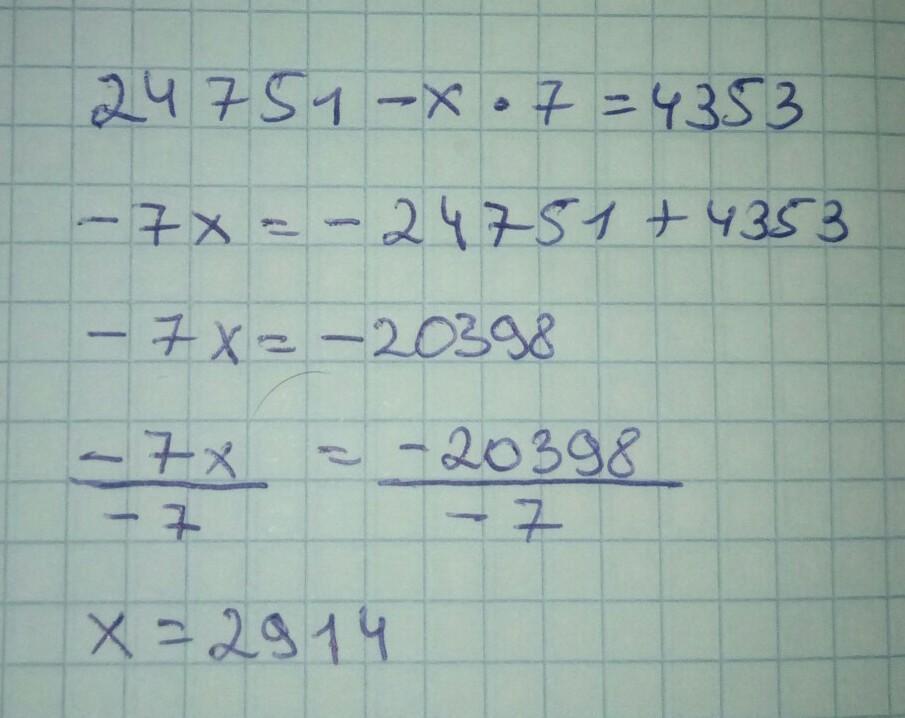 24751 - x · 7 = 4353
-7x = -24751 + 4353
-7x = -20398
-7x = -20398
-7 -7
x = 2914